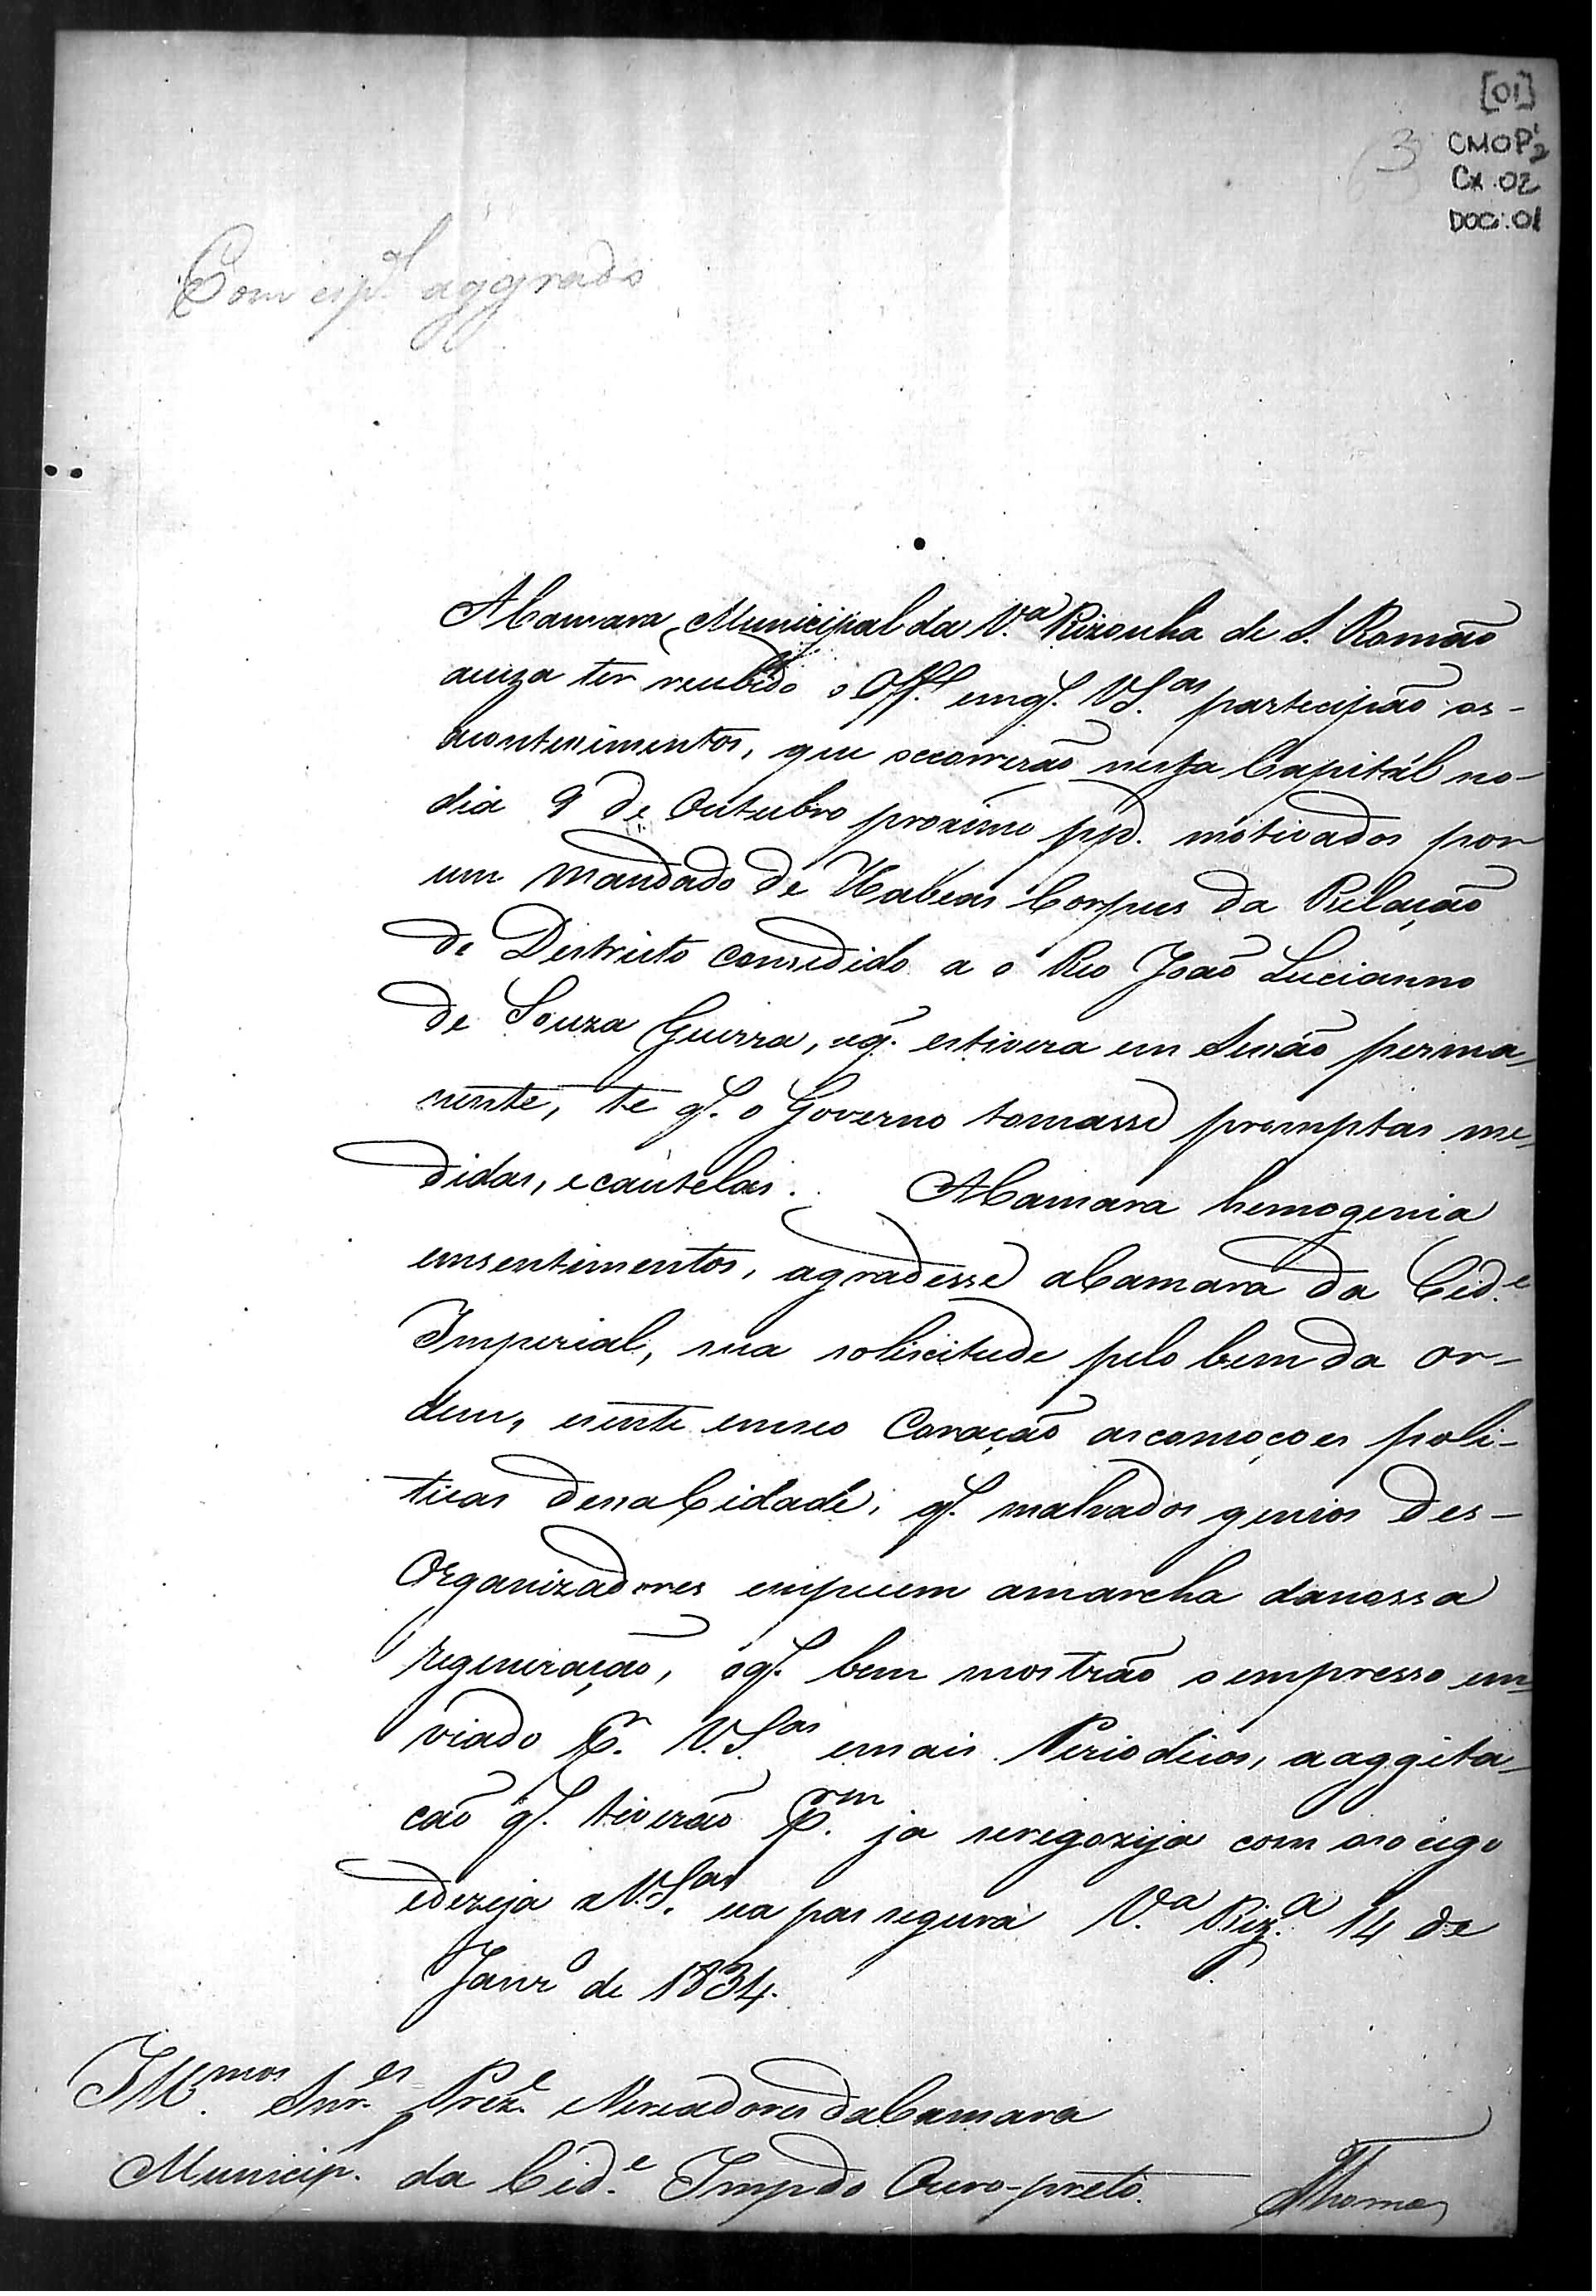 [01]
3 CMOP 2
Cx. 02
DOC: 01
Com esp.al aggrado
A Camara Municipal da V.a Rizonha de S. Romão
acuza ter recebido o Off.o em q̃. V.S.as partecipão os-
acontecimentos, que occorrerão nessa Capitál no-
dia 9 de Outubro proximo pp.d. motivados por
um mandado de Habeas Corpus da Relação
do Destricto consedido a o Reo João Lucianno
de Souza Guerra, eq̃. estivera em Sessão perma
nente, te q̃. o Governo tomasse promptas me
didas, e cautelas. A Camara hemogenia
em sentimentos, agradesse a Camara da Cid.e
Imperial, sua solicitude pelo bem da or-
dem, esente emseo Coração as comoçoes poli-
ticas dessa Cidade, q̃. malvados genios des-
organizadores empecem a marcha da nossa
regeneração, oq̃. bem mostrão o empresso en
viado P.r V.S.as emais Periodicos, a aggita
cão q̃. tiverão P.rem ja seregozija com osocego
edezeja a V.S.as ea pas segura V.a Riz.a 14 de
Janr.o de 1834.
Ill.mos Snr.es Prez.e Vereadores da Camara
Municip. da Cid.e Imp do Ouro-preto.